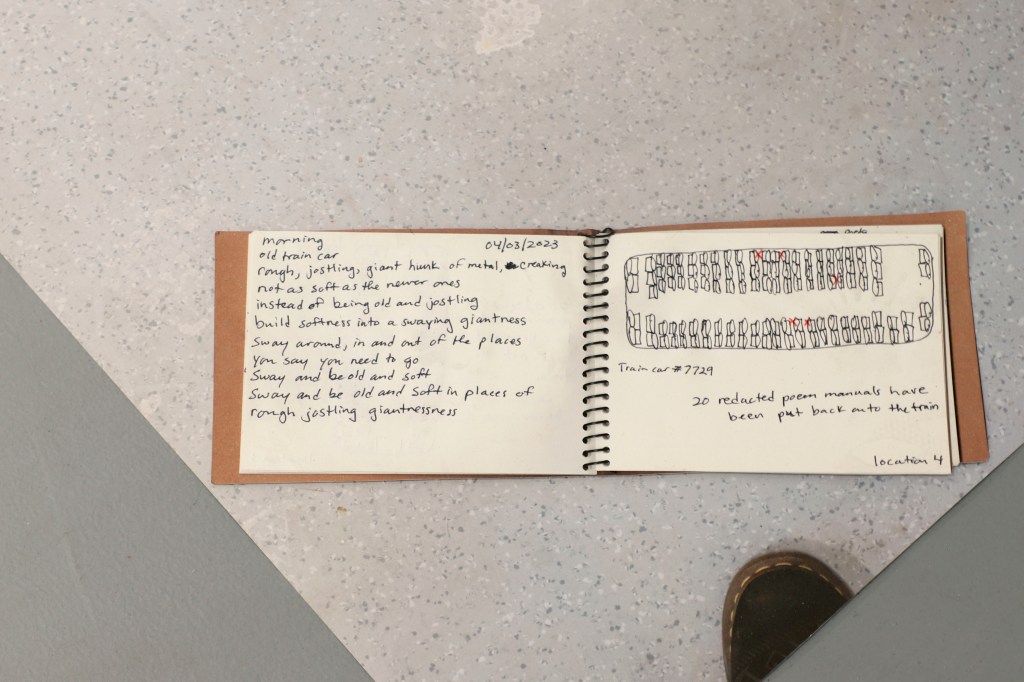 morning
04/03/2023
old train car
rough, jostling, giant hunk of metal, creaking
not as soft as the newer ones
instead of being old and jostling
build softness into a swaying giantness
Sway around, in and out of the places
you say you need to go
Sway and be old and soft
Sway and be old and soft in places of
rough jostling giantnessness
Train car #7729
20 redacted poem manuals have
been put back onto the train
location 4